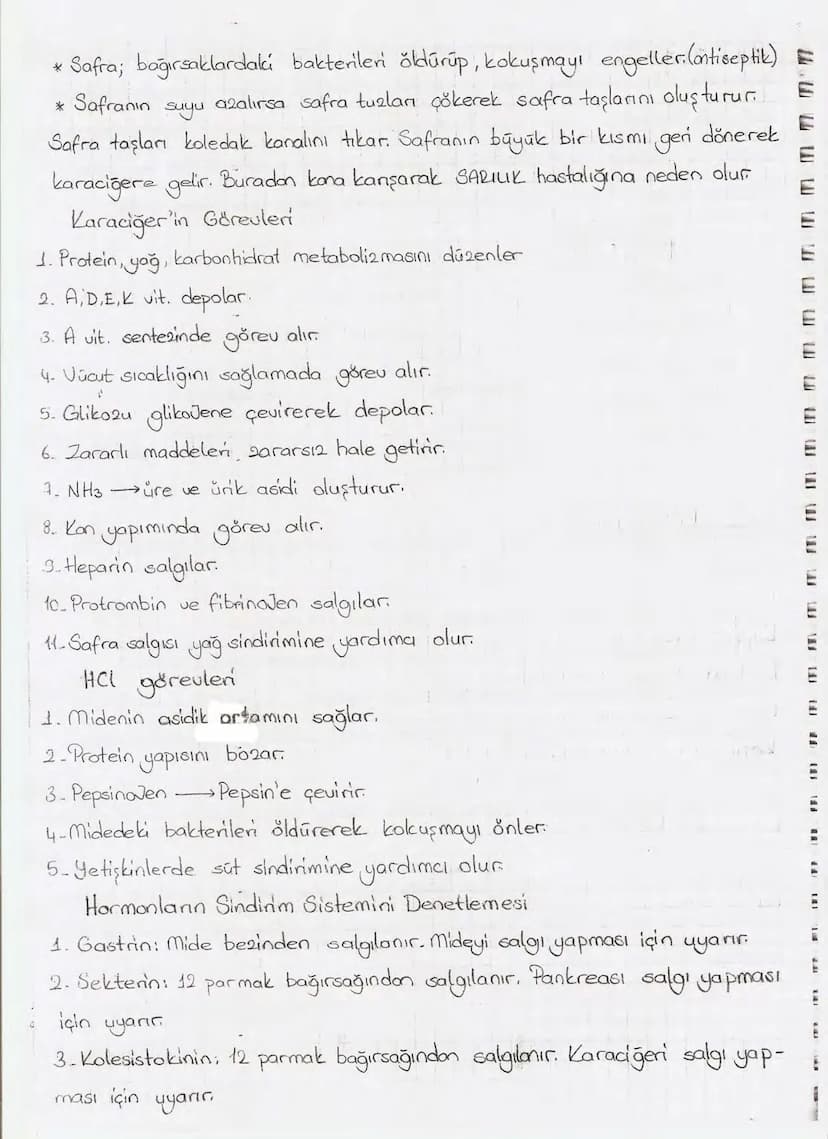 * Safra; bağırsaklardaki bakterileri öldürüp, kokuşmayı engeller.(antiseptik)
* Safranın suyu azalırsa safra tuzları çökerek safra taşlarını oluşturur.
Safra taşları koledak kanalını tıkar. Safranın büyük bir kısmı geri dönerek
karaciğere gelir. Buradan kana karışarak SARILIK hastalığına neden olur
Karaciğer'in Görevleri
1. Protein, yağ, karbonhidrat metabolizmasını düzenler
2. A,D,E,K vit. depolar.
3. A vit. sentezinde görev alır.
4. Vücut sıcaklığını sağlamada görev alır.
5. Glikozu glikojene çevirerek depolar.
6. Zararlı maddeleri zararsız hale getirir.
7. NH3 → üre ve ürik asidi oluşturur.
8. Kan yapımında görev alır.
9. Heparin salgılar.
10- Protrombin ve fibrinojen salgılar.
11- Safra salgısı yağ sindirimine yardımcı olur.
HCl görevleri
1. Midenin asidik ortamını sağlar.
2 - Protein yapısını bozar.
3 - Pepsinojen → Pepsin'e çevirir.
4 - Midedeki bakterileri öldürerek kokuşmayı önler.
5 - Yetişkinlerde süt sindirimine yardımcı olur.
Hormonların Sindirim Sistemini Denetlemesi
1. Gastrin: Mide bezinden salgılanır. Mideyi salgı yapması için uyarır.
2. Sekterin: 12 parmak bağırsağından salgılanır. Pankreası salgı yapması
için uyarır.
3 - Kolesistokinin: 12 parmak bağırsağından salgılanır. Karaciğeri salgı yap-
ması için uyarır.